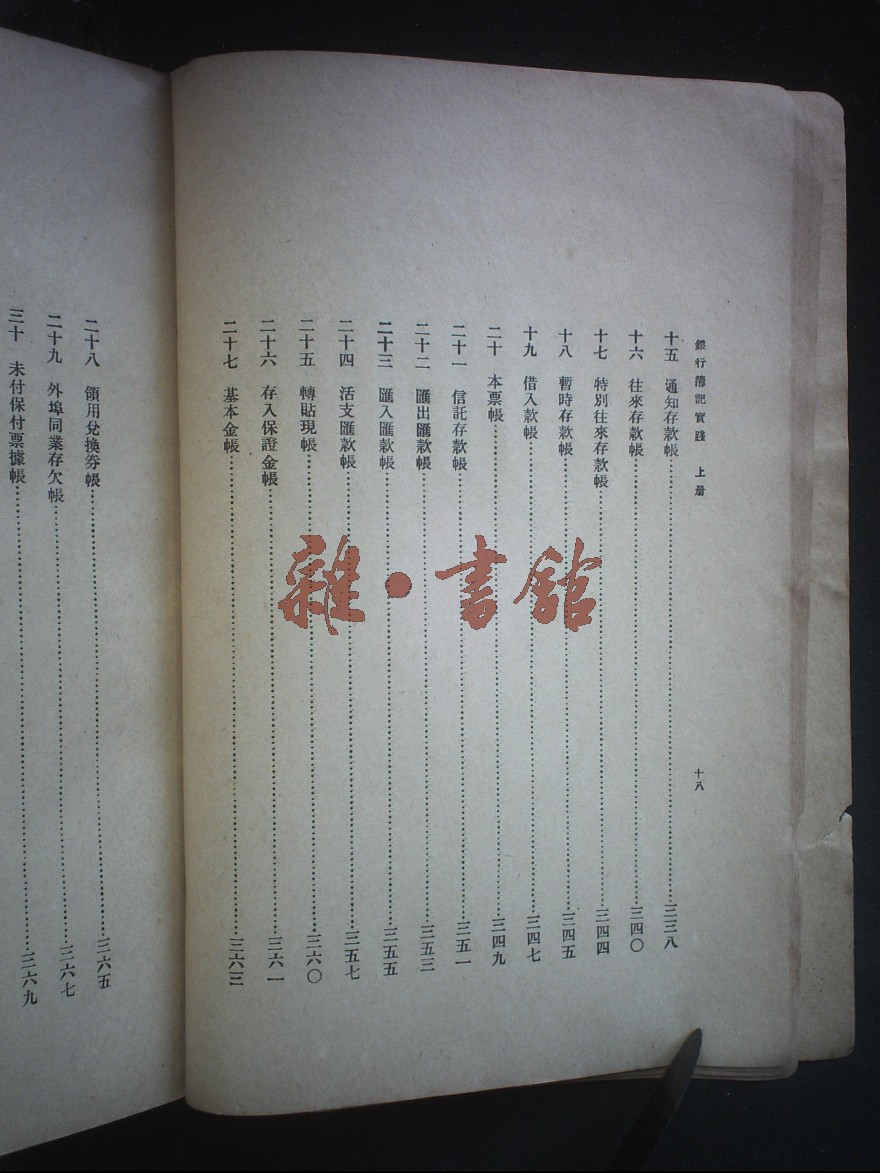 銀行簿記實踐 上册
十八
十五 通知存款帳……三三八
十六 往來存款帳……三四〇
十七 特別往來存款帳……三四四
十八 暫時存款帳……三四五
十九 借入款帳……三四七
二十 本票帳……三四九
二十一 信託存款帳……三五一
二十二 匯出匯款帳……三五三
二十三 匯入匯款帳……三五五
二十四 活支匯款帳……三五七
二十五 轉貼現帳……三六〇
二十六 存入保證金帳……三六一
二十七 基本金帳……三六三
二十八 領用兌換券帳……三六五
二十九 外埠同業存欠帳……三六七
三十 未付保付票據帳……三六九
雜·書館